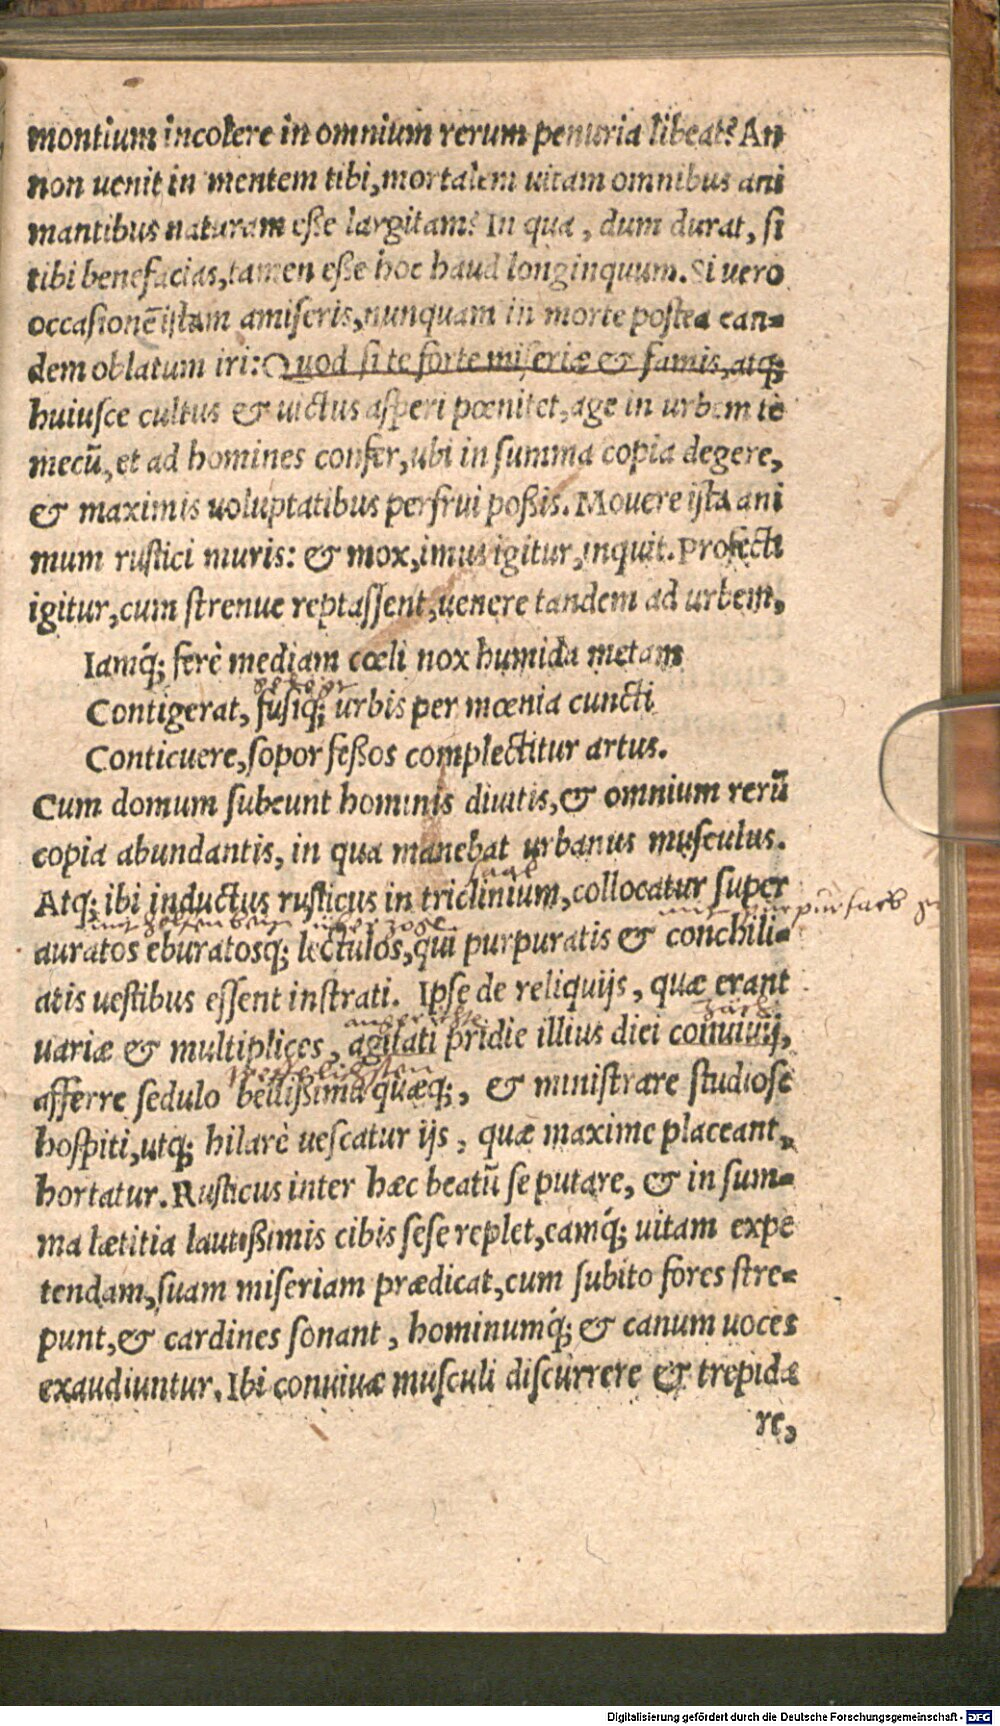 montium incolere in omnium rerum penuria libeat? An
non uenit in mentem tibi, mortalem uitam omnibus ani
mantibus naturam eſſe largitam? In qua, dum durat, ſi
tibi benefacias, tamen eſſe hoc haud longinquum. Si uero
occaſionē iſtam amiſeris, nunquam in morte poſtea ean-
dem oblatum iri: Quod ſi te forte miſeriæ & famis, atq;
huiuſce cultus & uictus aſperi pœnitet, age in urbem te
mecū, et ad homines confer, ubi in ſumma copia degere,
& maximis uoluptatibus perfrui poßis. Mouere iſta ani
mum ruſtici muris: & mox, imus igitur, inquit. Profecti
igitur, cum ſtrenue reptaſſent, uenere tandem ad urbem,
Iamq́; ferè mediam cœli nox humida metam
Contigerat, fuſiq; urbis per mœnia cuncti
Conticuere, ſopor feßos complectitur artus.
Cum domum ſubeunt hominis diuitis, & omnium rerū
copia abundantis, in qua manebat urbanus muſculus.
ſaal
Atq; ibi inductus ruſticus in triclinium, collocatur ſuper
auratos eburatosq; lectulos, qui purpuratis & conchili-
atis ueſtibus eſſent inſtrati. Ipſe de reliquijs, quæ erant
uariæ & multiplices, agitati pridie illius diei conuiuij,
afferre ſedulo bellißima quæq;, & miniſtrare ſtudioſe
hoſpiti, utq; hilarè ueſcatur ijs, quæ maxime placeant,
hortatur. Ruſticus inter hæc beatū ſe putare, & in ſum-
ma lætitia lautißimis cibis ſeſe replet, eamq́; uitam expe
tendam, ſuam miſeriam prædicat, cum ſubito fores ſtre-
punt, & cardines ſonant, hominumq́; & canum uoces
exaudiuntur. Ibi conuiuæ muſculi diſcurrere & trepida
re,
Digitalisierung gefördert durch die Deutsche Forschungsgemeinschaft - DFG